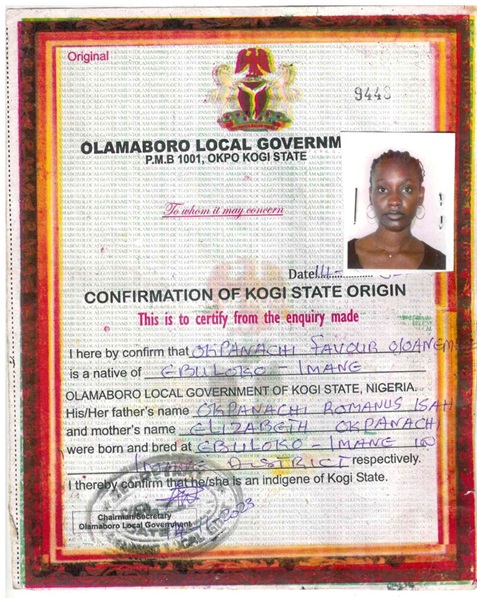 Original
9448
OLAMABORO LOCAL GOVERNM
P.M.B 1001, OKPO KOGI STATE
To whom it may concern
Date
CONFIRMATION OF KOGI STATE ORIGIN
This is to certify from the enquiry made
I here by confirm that OKPANACHI FAVOUR
is a native of EBULOKO - IMANE
OLAMABORO LOCAL GOVERNMENT OF KOGI STATE, NIGERIA.
His/Her father's name OKPANACHI ROMANUS ISAH
and mother's name ELIZABETH OKPANACHI
were born and bred at EBULOKO - IMANE IN
DISTRICT respectively.
I thereby confirm that he/she is an indigene of Kogi State.
Chairman/Secretary
Olamaboro Local Government